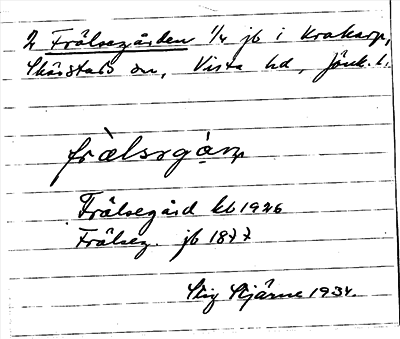 2 Frälsegården 1/4 jb i Krakarp,
Skärstads sn, Vista hd, Jönk. l.
frälsrgån
Frälsegård kb 1926
Frälseg. jb 1877
Stig Stjärne 1934.